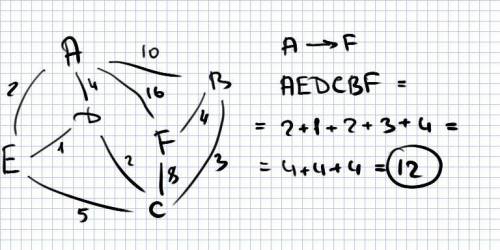 A
10
B
2
4
16
D
F
4
E
1
2
8
3
5
C
A → F
AEDCBF =
= 2+1+2+3+4 =
= 4+4+4 = 12